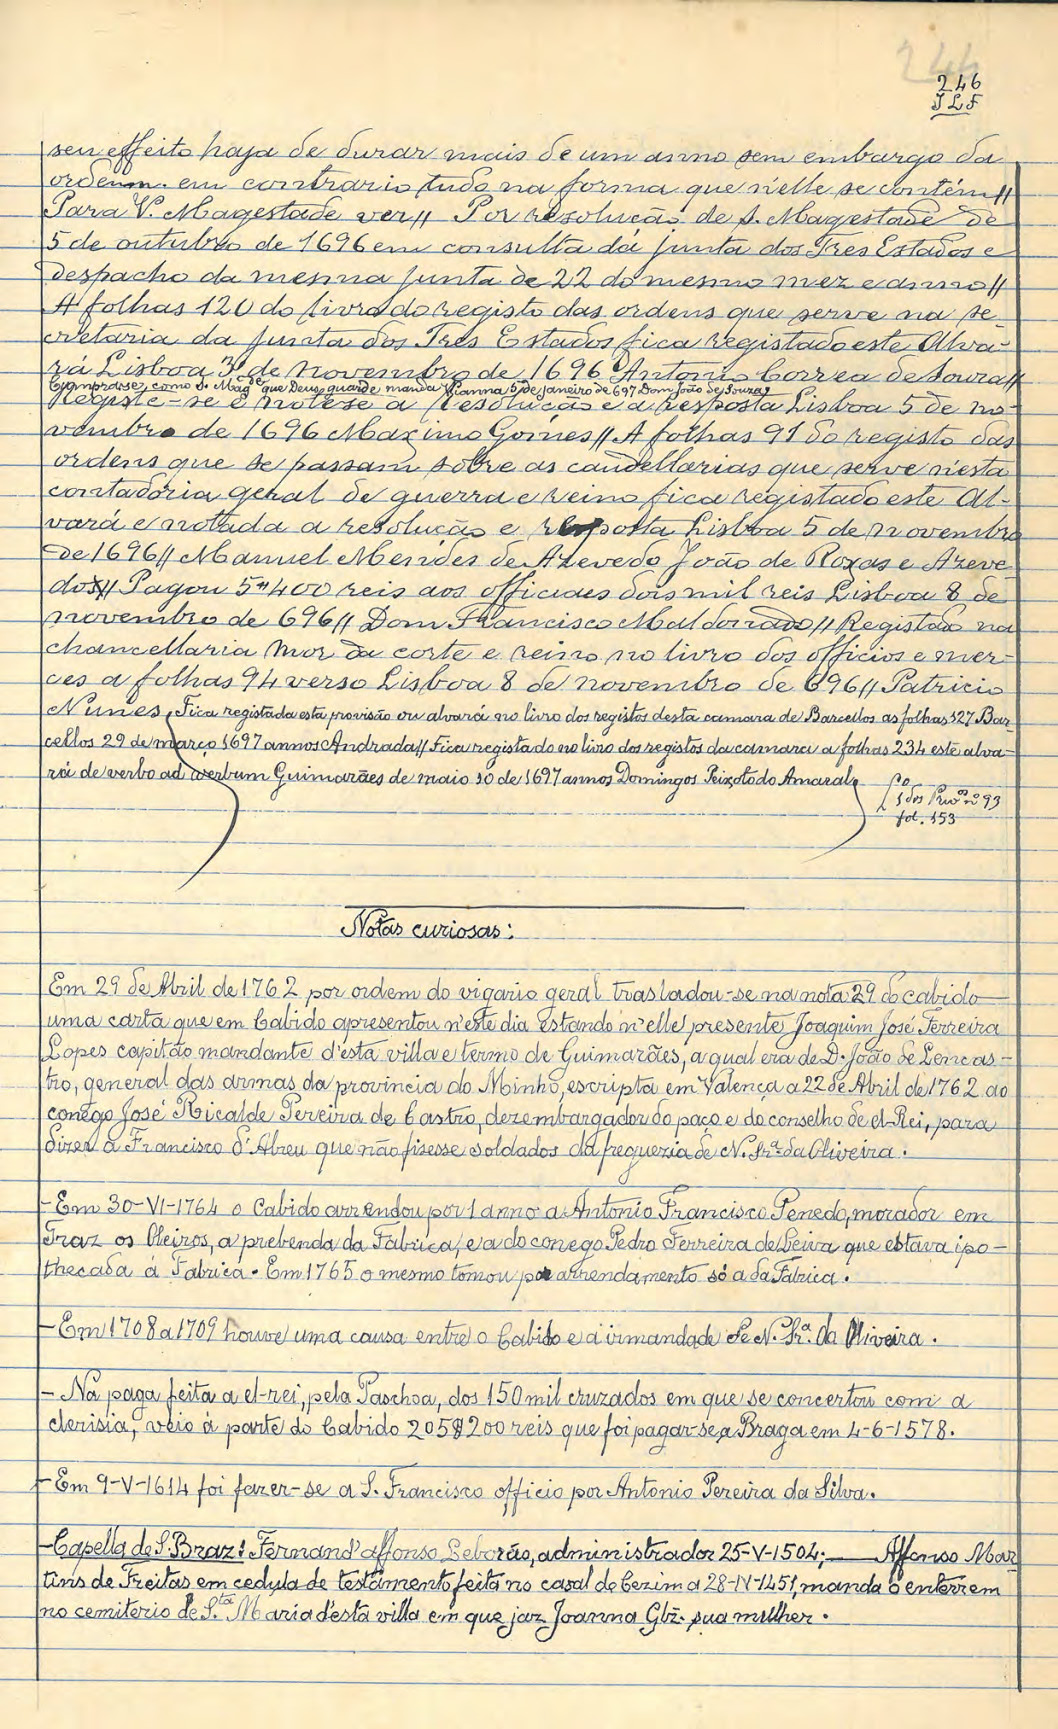 246
246
JLF
seu effeito haja de durar mais de um anno sem embargo da
ordenm. em contrario tudo na forma que n'elle se contém//
Para V. Magestade ver// Por resolução de S. Magestade de
5 de outubro de 1696 em consulta da junta dos Tres Estados e
despacho da mesma junta de 22 do mesmo mez e anno//
A folhas 120 do livro do registo das ordens que serve na se-
cretaria da junta dos Tres Estados fica registado este Alva-
rá Lisboa 3 de novembro de 1696 Antonio Correa de Soura//
Cumpra-se como S. Mag.de que Deus guarde manda Vianna 5 de Janeiro de 697 Dom João de Souza
Registe-se e note-se a resolução e a resposta Lisboa 5 de no-
vembro de 1696 Maximo Gomes// A folhas 91 do registo das
ordens que se passam sobre as caudellarias que serve n'esta
contadoria geral de guerra e reino fica registado este Al-
vará e notada a resolução e resposta Lisboa 5 de novembro
de 1696// Manuel Mendes de Azevedo João de Roxas e Azeve-
do// Pagou 5#400 reis aos officiaes dois mil reis Lisboa 8 de
novembro de 696// Dom Francisco Maldonado// Registado na
chancellaria mor da corte e reino no livro dos officios e mer-
ces a folhas 94 verso Lisboa 8 de novembro de 696// Patricio
Nunes, Fica registada esta provisão ou alvará no livro dos registos desta camara de Barcellos as folhas 327 Bar-
cellos 29 de março 1697 annos Andrada// Fica registado no livro dos registos da camara a folhas 234 este alva-
rá de verbo ad verbum Guimarães de maio 10 de 1697 annos Domingos Peixoto do Amaral
1 dos Priv.os nº 93
fol. 153
Notas curiosas:
Em 29 de Abril de 1762 por ordem do vigario geral trasladou-se na nota 29 do cabido
uma carta que em Cabido apresentou n'este dia estando n'elle presente, Joaquim José Ferreira
Lopes capitão mandante d'esta villa e termo de Guimarães, a qual era de D. João de Lencas-
tro, general das armas da provincia do Minho, escripta em Valença a 22 de Abril de 1762 ao
conego José Ricalde Pereira de Castro, dezembargador do paço e do conselho de el-Rei, para
dizer a Francisco d'Abreu que não fizesse soldados da freguezia de N. Sr.ª da Oliveira.
- Em 30-VI-1764 o Cabido arrendou por 1 anno a Antonio Francisco Penedo, morador em
Traz os Oleiros, a prebenda da Fabrica, e a do conego Pedro Ferreira de Leiva que estava ipo-
thecada á Fabrica. Em 1765 o mesmo tomou por arrendamento só a da Fabrica.
- Em 1708 a 1709 houve uma causa entre o Cabido e a irmandade de N. Sr.ª da Oliveira.
- Na paga feita a el-rei, pela Paschoa, dos 150 mil cruzados em que se concertou com a
clerisia, veio á parte do Cabido 205$200 reis que foi pagar-se a Braga em 4-6-1578.
- Em 9-V-1614 foi fazer-se a S. Francisco officio por Antonio Pereira da Silva.
- Capella de S. Braz: Fernand'affonso Leborão, administrador 25-V-1504; — Affonso Mar-
tins de Freitas em cedula de testamento feita no casal de Cezim a 28-IV-1451, manda o enterrem
no cemiterio de S.ta Maria d'esta villa em que jaz Joanna Glz. sua mulher.